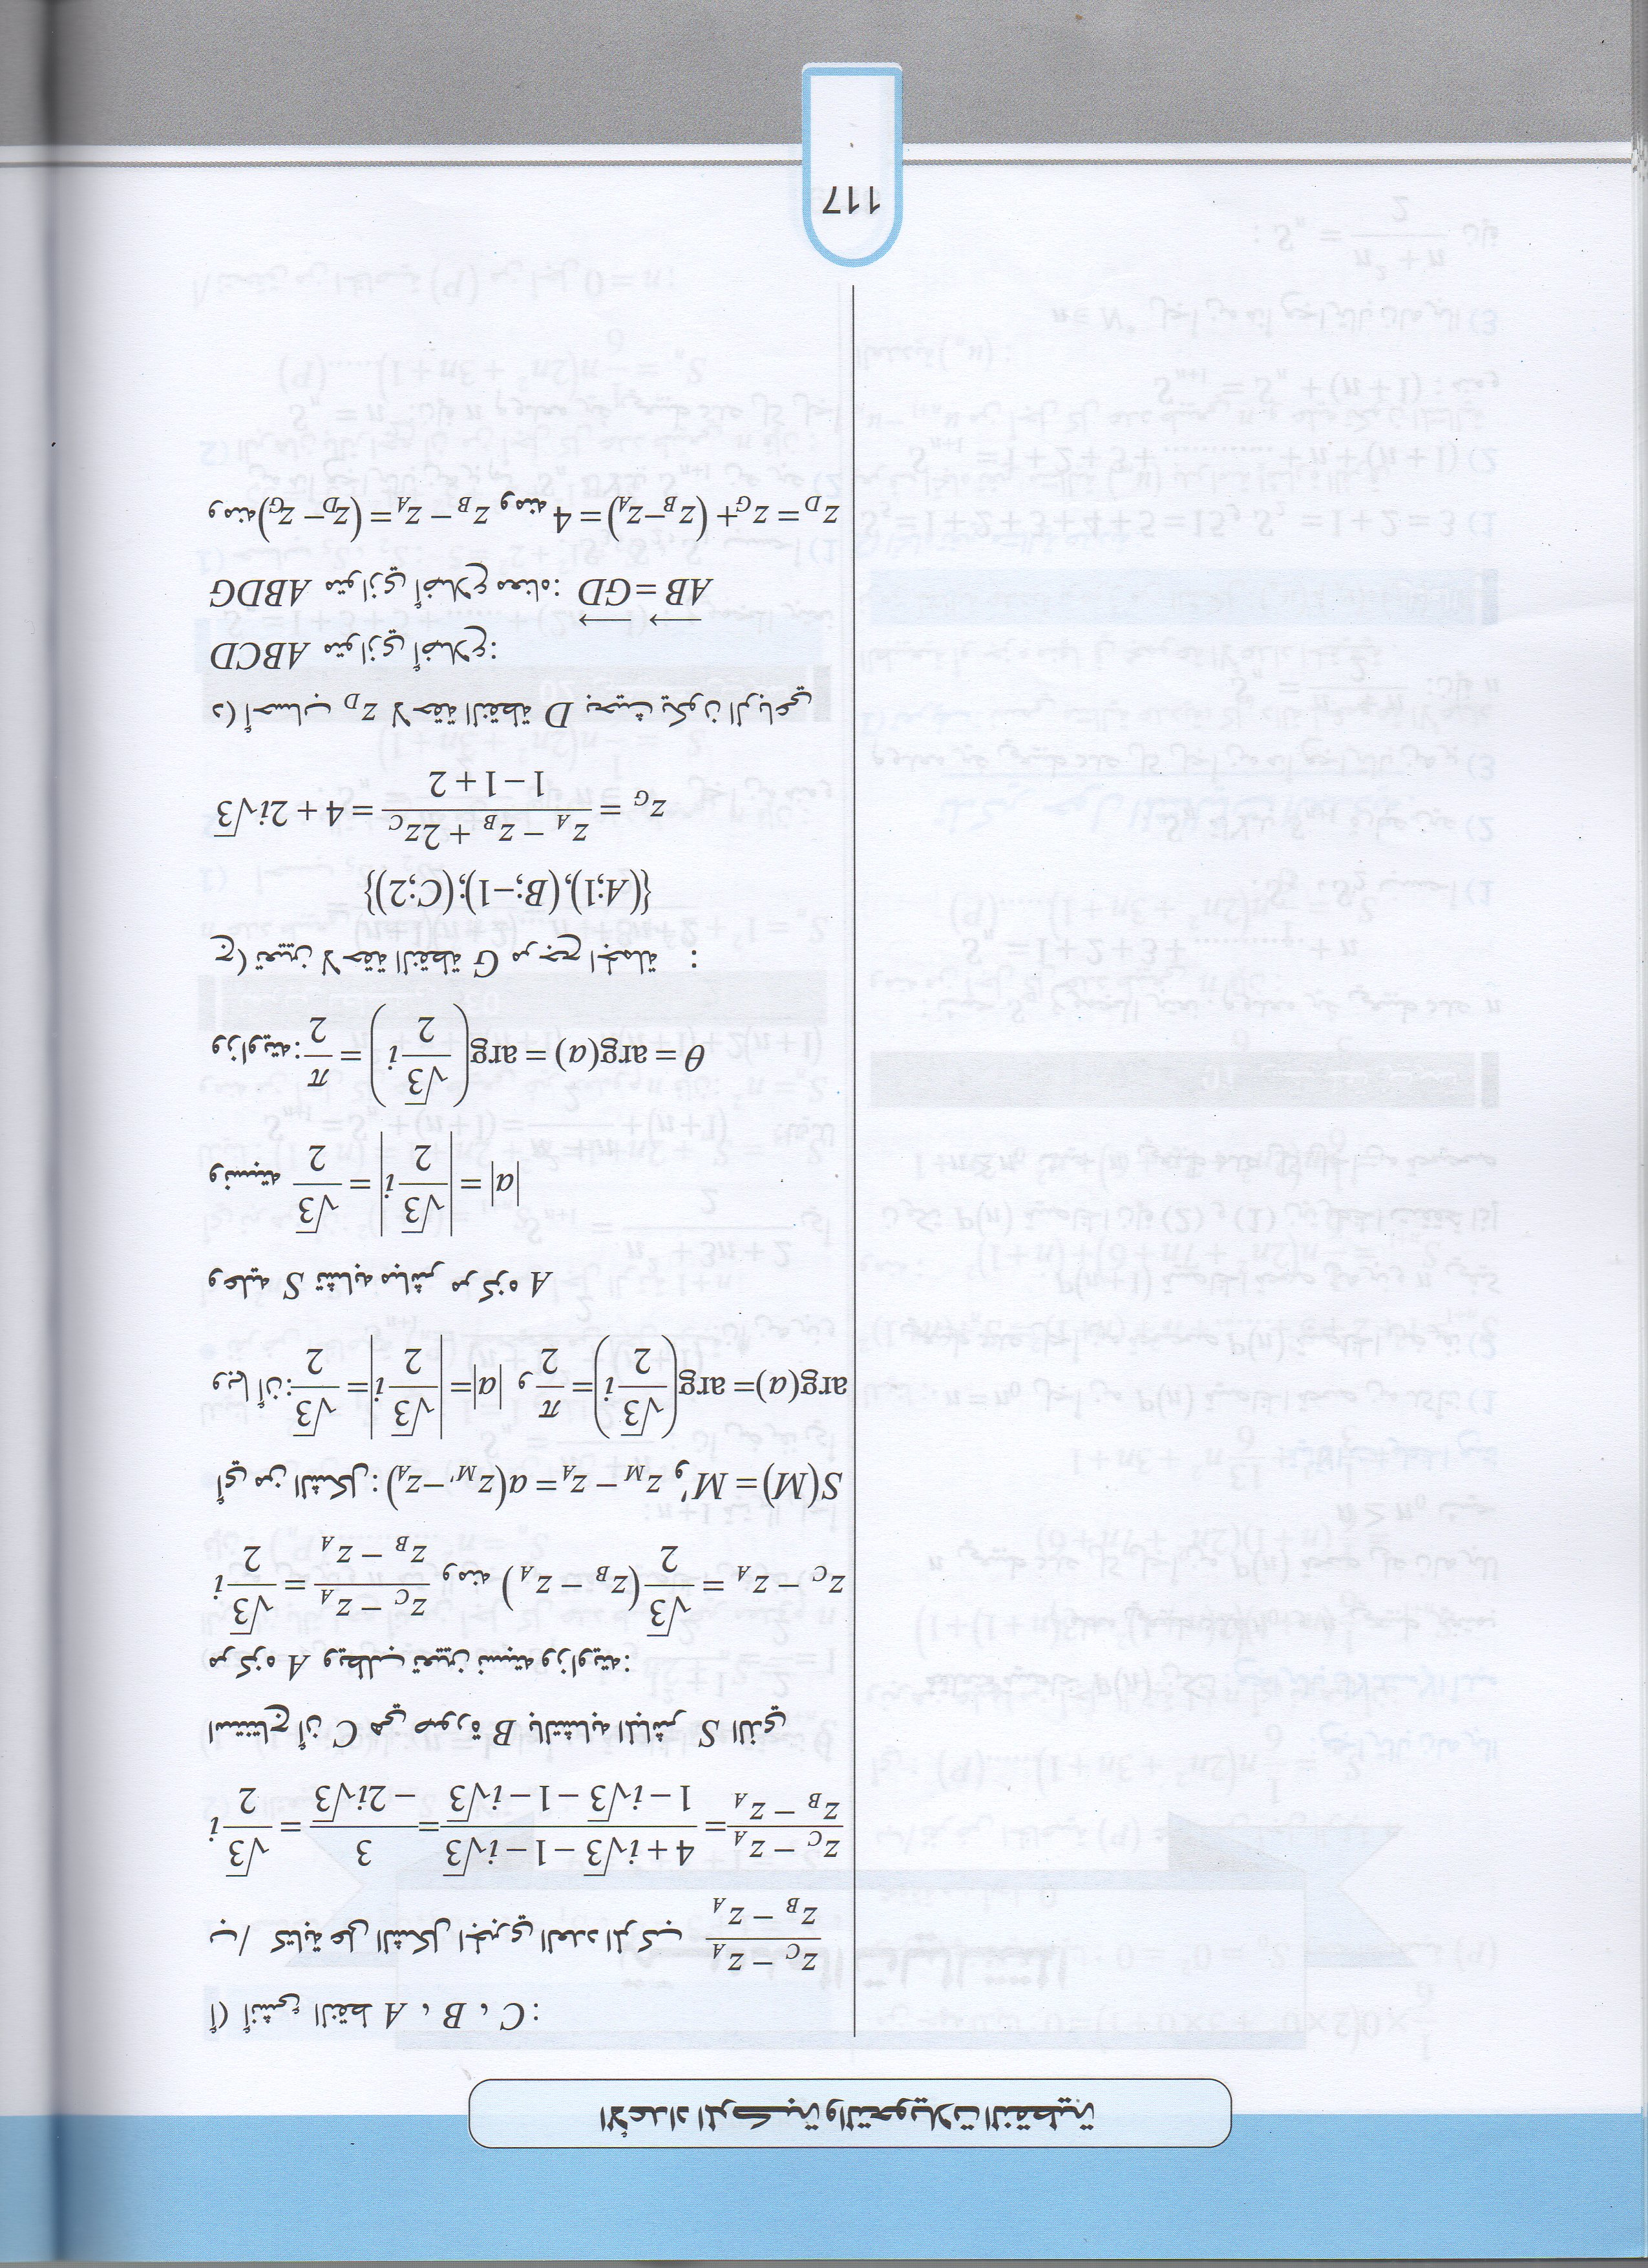 الأعداد المركبة والتحويلات النقطية
أ) أنشئ النقط A ، B ، C:
ب/ كتابة على الشكل الجبري العدد المركب \frac{z_C - z_A}{z_B - z_A}
\frac{z_C - z_A}{z_B - z_A} = \frac{4 + i\sqrt{3} - 1 - i\sqrt{3}}{1 - i\sqrt{3} - 1 - i\sqrt{3}} = \frac{3}{-2i\sqrt{3}} = \frac{\sqrt{3}}{2}i
استنتاج أن C هي صورة B بالتشابه المباشر S الذي
مركزه A ويطلب تعيين نسبته وزاويته:
z_C - z_A = \frac{\sqrt{3}}{2}(z_B - z_A) ومنه \frac{z_C - z_A}{z_B - z_A} = \frac{\sqrt{3}}{2}i
أي من الشكل: z_M - z_A = a(z_{M'} - z_A) و S(M) = M'
وبما أن: |a| = \left|\frac{\sqrt{3}}{2}i\right| = \frac{\sqrt{3}}{2} و arg(a) = arg\left(\frac{\sqrt{3}}{2}i\right) = \frac{\pi}{2}
وعليه S تشابه مباشر مركزه A
ونسبته |a| = \left|\frac{\sqrt{3}}{2}i\right| = \frac{\sqrt{3}}{2}
وزاويته: θ = arg(a) = arg\left(\frac{\sqrt{3}}{2}i\right) = \frac{\pi}{2}
ج) تعيين لاحقة النقطة G مرجح الجملة :
{(A;1),(B;-1);(C;2)}
z_G = \frac{z_A - z_B + 2z_C}{1 - 1 + 2} = 4 + 2i\sqrt{3}
د) أحساب z_D لاحقة النقطة D بحيث يكون الرباعي
ABCD متوازي أضلاع:
ABDG متوازي أضلاع معناه: \overrightarrow{AB} = \overrightarrow{GD}
ومنه (z_D - z_G) = z_B - z_A ومنه z_D = z_G + (z_B - z_A) = 4
117